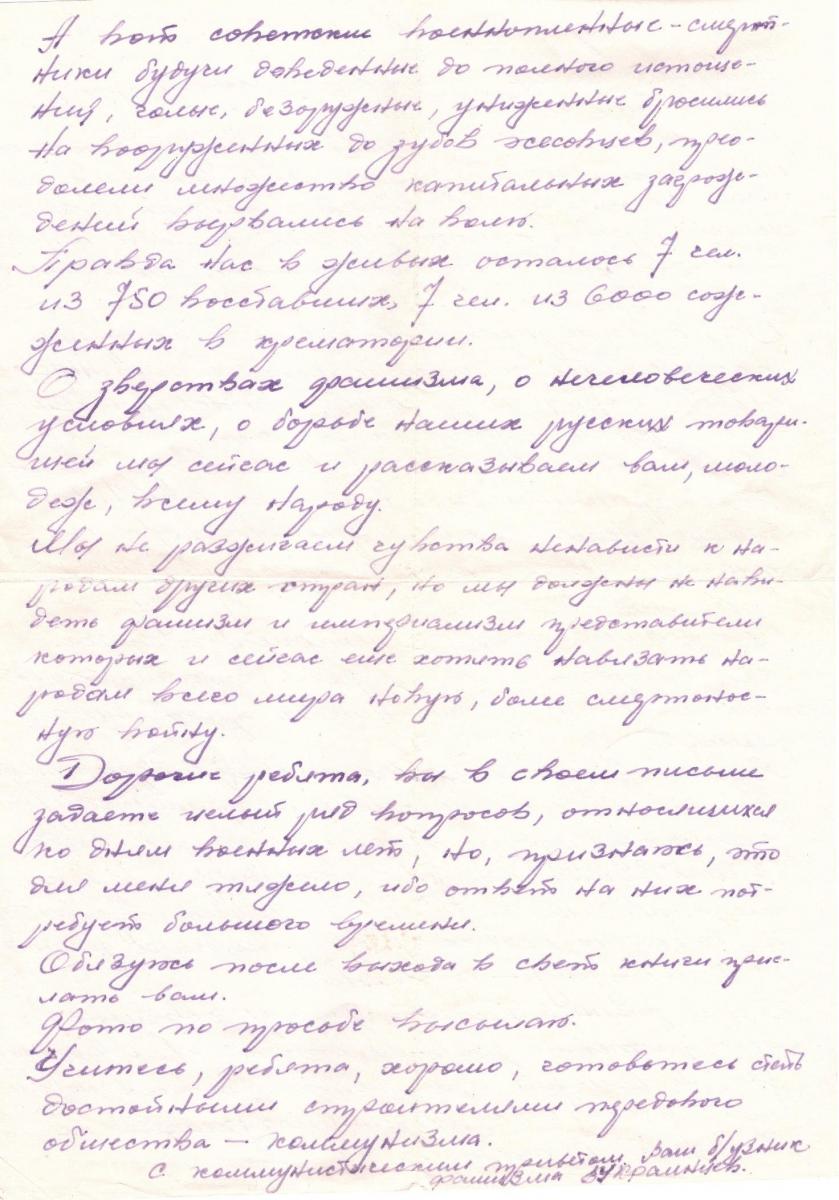 А вот советские военнопленные-смерт-
ники будучи доведенные до полного истоще-
ния, голые, безоружные, униженные бросились
на вооруженных до зубов эсесовцев, прео-
долели множество капитальных заграж-
дений вырвались на волю.
Правда нас в живых осталось 7 чел.
из 750 восставших, 7 чел. из 6000 сож-
женных в крематории.
О зверствах фашизма, о нечеловеческих
условиях, о борьбе наших русских товари-
щей мы сейчас и рассказываем вам, моло-
деж, всему народу.
Мы не разжигаем чувства ненависти к на-
родам других стран, но мы должны не нави-
деть фашизм и империализм представители
которых и сейчас еще хотять навязать на-
родам всего мира новую, более смертонос-
ную войну.
Дорогие ребята, вы в своем письме
задаете целый ряд вопросов, относящихся
ко дням военных лет, но, признаюсь, это
для меня тяжело, ибо ответ на них пот-
ребует большого времени.
Обязуюсь после выхода в свет книги прис-
лать вам.
Фото по просьбе высылаю.
Учитесь, ребята, хорошо, готовьтесь стать
достойными строителями передового
общества — коммунизма.
С коммунистическим приветом Ваш б/узник
фашизма В Украинцев.